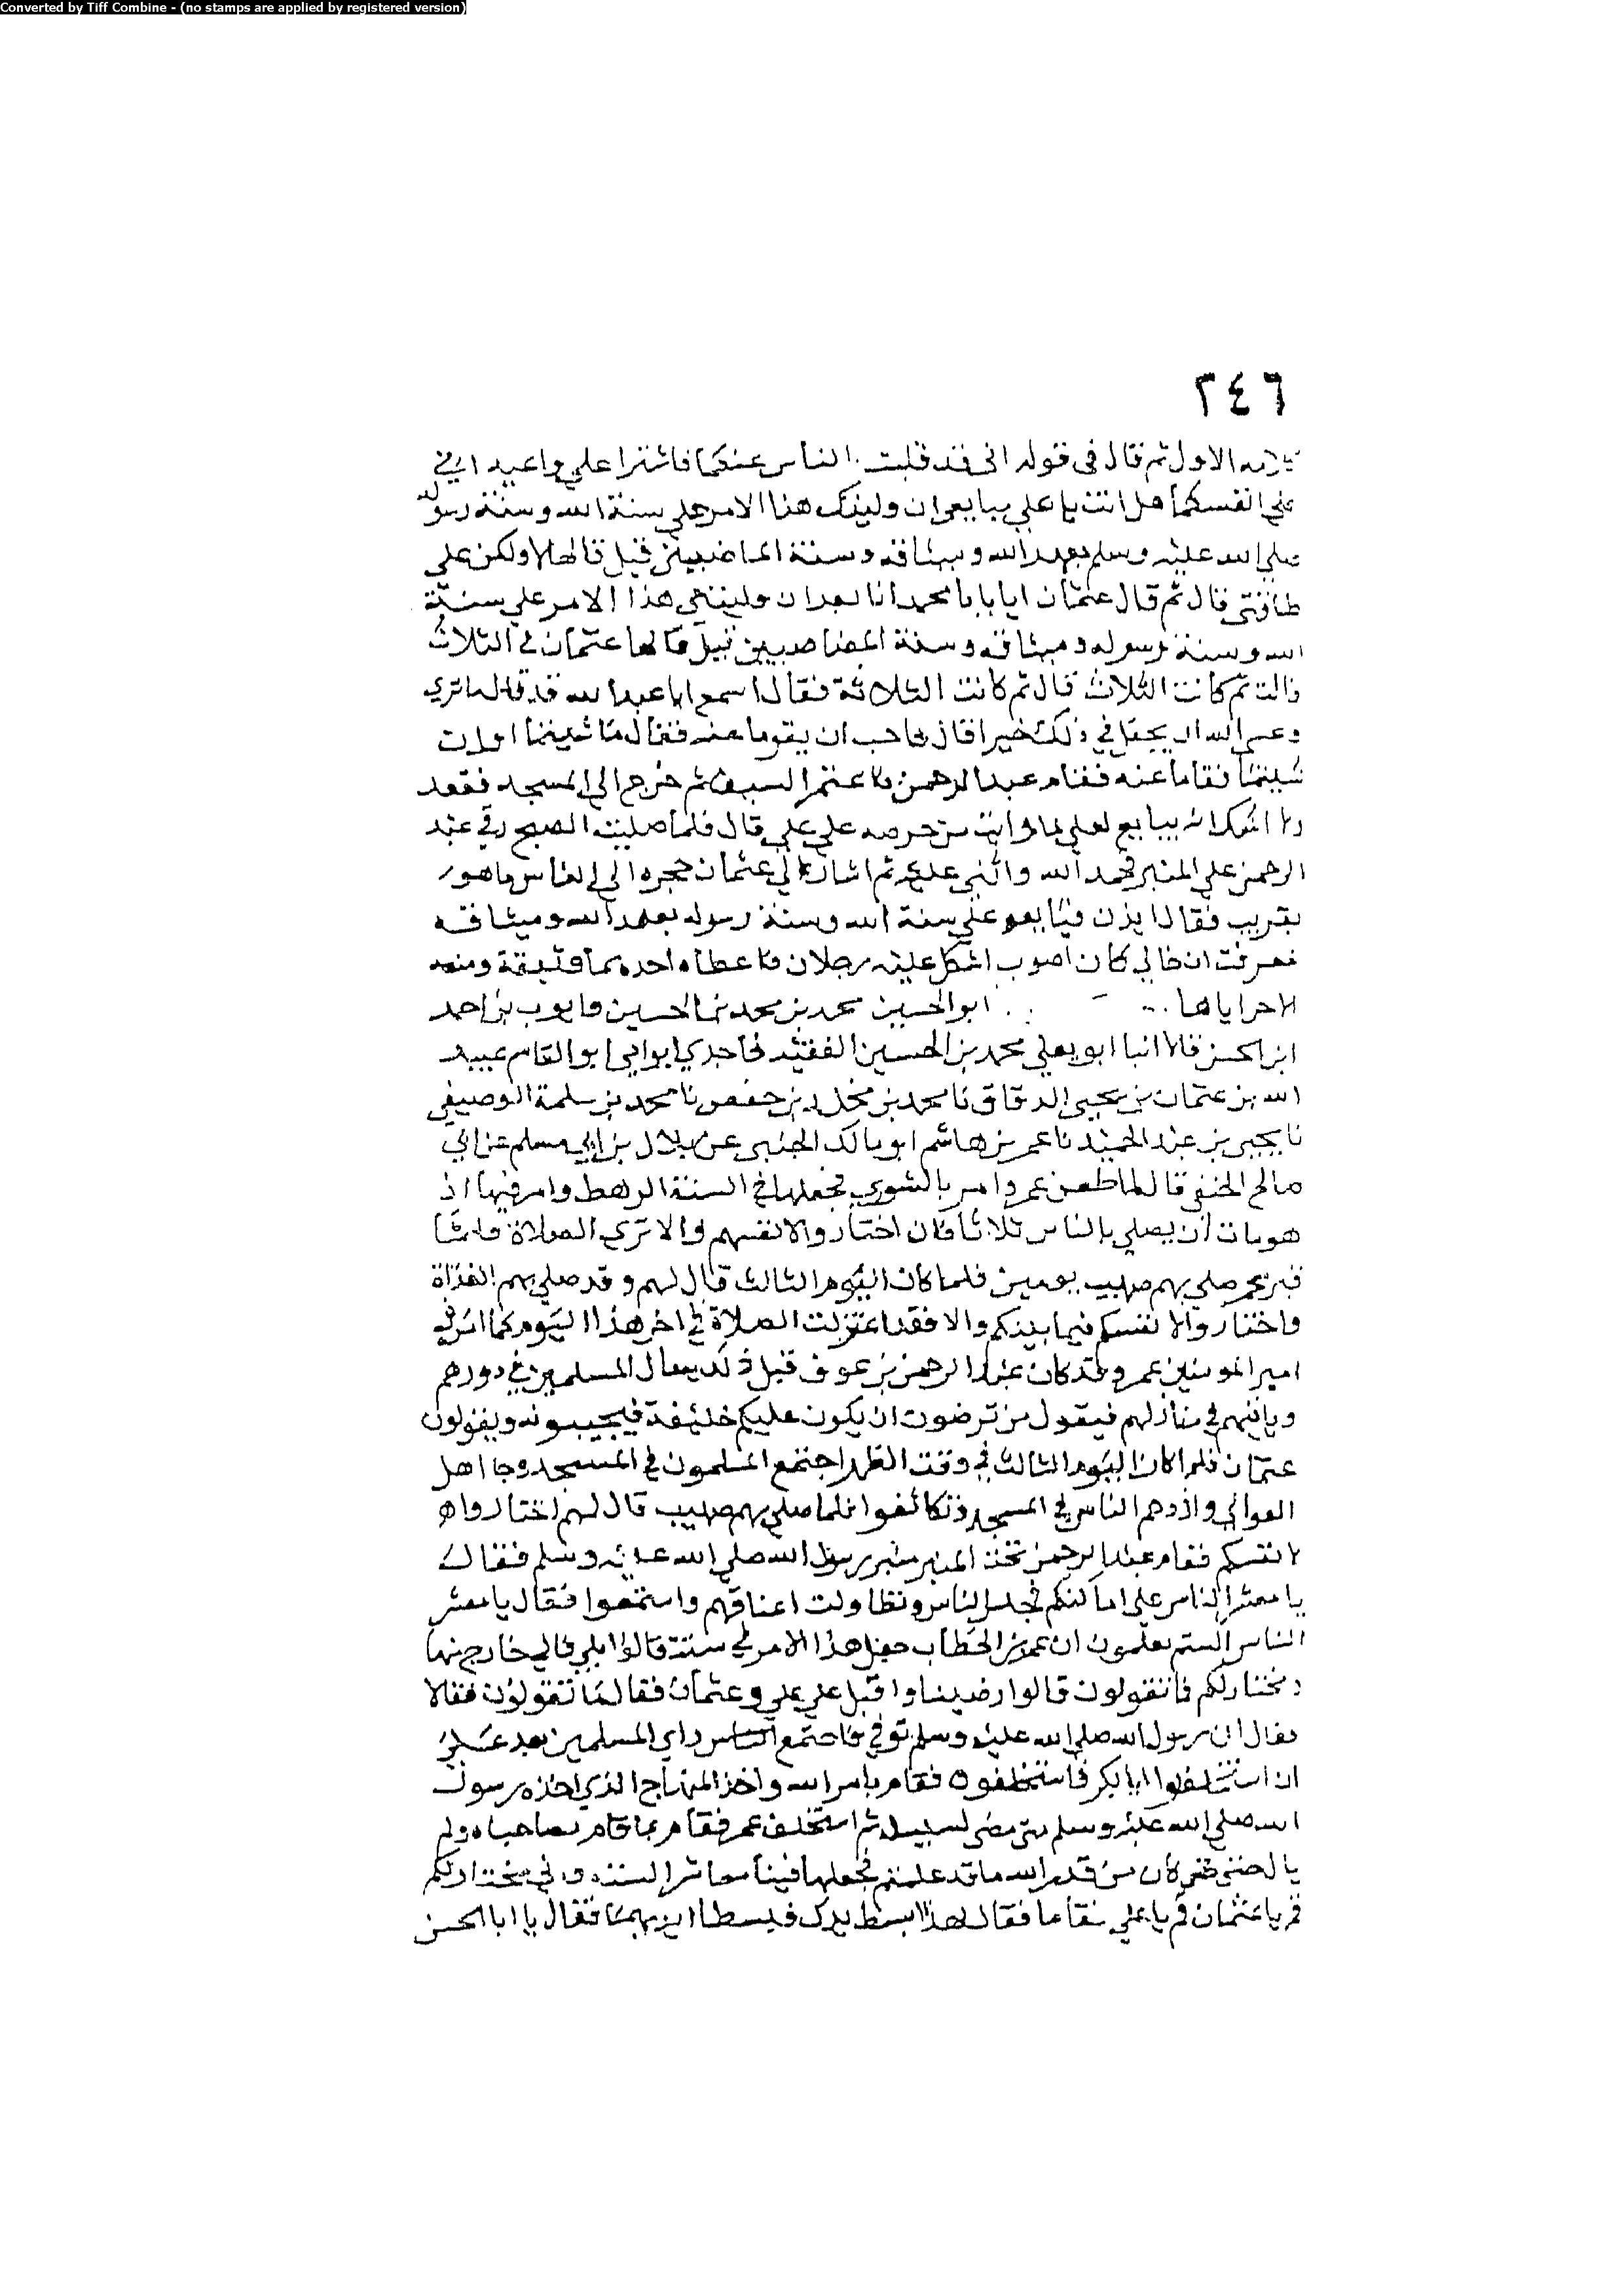 Converted by Tiff Combine - (no stamps are applied by registered version)
٢٤٦
الاول ثم قال في قوله اني قد قلبت الناس عنكما فاشيرا علي واعيناني
علي انفسكما هل انت يا علي مبايعي ان وليتك هذا الامر علي سنة الله وسنة رسوله
صلي الله عليه وسلم بعهد الله وميثاقه وسنة الماضيين قبل قال لا ولكن علي
طاقتي قال ثم قال عثمان انا يا با محمد ابايعك ان وليتني هذا الامر علي سنة
الله وسنة رسوله وميثاقه وسنة الماضيين قبل قالها عثمان في الثلاث
قالت ثم كانت الثلاث قال ثم كانت الثالثة فقال اسمع ابا عبد الله قد قال ما تري
وعسي الله ان يجعل في ذلك خيرا قال فاحب ان يقوما عنه فقال ما شيتما ان
شيتما فقاما عنه فقام عبد الرحمن فاعتم السيف ثم خرج الي المسجد فقعد
ولا اشك انه يبايع لعلي لما رايت من حرصه علي علي قال فلما صليت الصبح رقي عبد
الرحمن علي المنبر فحمد الله واثني عليه ثم اشار الي عثمان حجره الي الناس ما هو
بقريب فقال ايذن فبايعه علي سنة الله وسنة رسوله بعهد الله وميثاقه
فعرفت ان خالي كان اصوب اشكل عليه رجلان فاعطاه احدهما وثيقة ومنعه
الاخر اياها ... ابو الحسين محمد بن محمد بن الحسين وايوب بن احمد
ابن الحسن قالا انبا ابو يعلي محمد بن الحسين الفقيه نا جدي لابوامي ابو القاسم عبيد
الله بن عثمان بن يحيي الدقاق نا محمد بن مخلد بن حفص نا محمد بن سلمة الوصيفي
نا يحيي بن عبد الحميد نا عمر بن هاشم ابو مالك الجنبي عن بلال بن ابي مسلم عن ابي
صالح الحنفي قال لما طعن عمر وامر بالشوري فجعلها في الستة الرهط وامر فيها اذ
هو مات ان يصلي بالناس ثلاثا فان اختاروا لانفسهم والا تري الصلاة
قبر عمر صلي بهم صهيب يومين فلما كان اليوم الثالث قال لهم وقد صلي بهم الغداة
واختاروا لانفسكم فيما بينكم والا فقد اعتزلت الصلاة في اخر هذا اليوم كما امرني
امير المومنين عمر وقد كان عبد الرحمن بن عوف قبل ذلك يسال المسلمين في دورهم
وياتيهم في منازلهم فيقول من ترضون ان يكون عليكم خليفة فيجيبونه ويقولون
عثمان فلما كان اليوم الثالث في وقت الظهر اجتمع المسلمون في المسجد وجا اهل
العوالي وازدحم الناس في المسجد وتكاثفوا فلما صلي بهم صهيب قال لهم اختاروا
لانفسكم فقام عبد الرحمن تحت المنبر منبر رسول الله صلي الله عليه وسلم فقال
يا معشر الناس علي اماكنكم فجلس الناس وتطاولت اعناقهم واستمعوا فقال يا معشر
الناس الستم تعلمون ان عمر بن الخطاب جعل هذا الامر في ستة قالوا بلي قال اني خارج منها
ومختار لكم فما تقولون قالوا رضينا واقبل علي علي وعثمان فقال ما تقولون فقالا
فقال ان رسول الله صلي الله عليه وسلم توفي فاجتمع الناس راي المسلمين بعد علي
ان استخلفوا ابا بكر فاستخلفوه فقام بامر الله واخذ المنهاج الذي اخذه رسول
الله صلي الله عليه وسلم حتي مضي لسبيله ثم استخلف عمر فقام بما قام صاحباه ولم
يال حتي كان من قدر الله ما قد علمتم فجعلها فينا معاشر الستة واني مختار لكم
قم يا عثمان قم يا علي فقاما فقال لهذا ابسط يدك فقال يا ابا الحسن